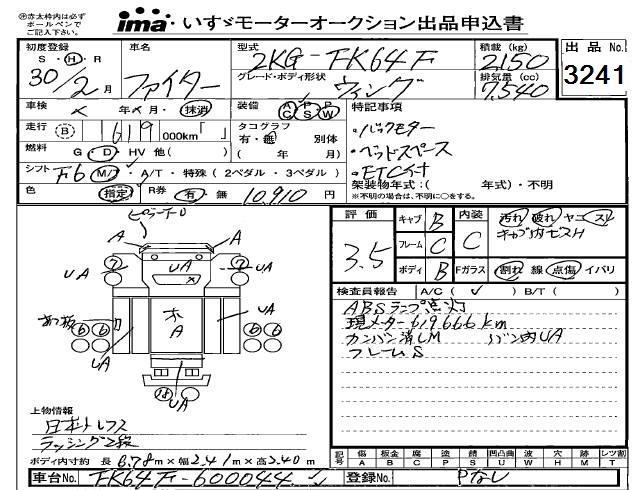 ㊞赤太枠内は必ず
ボールペンで
ご記入下さい。
ima いすゞモーターオークション出品申込書
初度登録 S・H・R 30/2月
車名 ファイター
型式 2KG-FK64F
グレード・ボディ形状 ウィング
積載(kg) 2150
排気量(cc) 7,540
出品No. 3241
車検 年 月・抹消
装備 A/C P/S P/W
走行 B 619 000km「 」
タコグラフ 有・無 別体
( 年 月)
燃料 G・D・HV 他( )
シフト F6 M/T・A/T・特殊(2ペダル・3ペダル)
色 指定 R券 有・無 10,910円
特記事項
・バックモター
・ヘッドスペース
・ETCカード
架装物年式:( 年式)・不明
※不明の場合は、不明に○をする。
評価 3.5
キャブ B 内装 C
フレーム C
ボディ B Fガラス
汚れ 破れ ヤニ スレ
キャブ内ビスH
割れ 線 点傷 イバリ
検査員報告 A/C(✓) B/T( )
ABSランプ点灯
現メーター619,666km
カンバン済LM バン内UA
フレームS
A A
UA ⑦ UA ⑦ UA
あゆ板 木 A UA
⑥⑥ UA ⑥⑥
⑱ UA
上物情報
日本トレクス
ラッシング2段
ボディ内寸約 長6.78m×幅2.41m×高2.40m
記号 傷 板金 腐 塗 錆 凹凸曲 波 穴 跡 レツ割
A B C P S U W H M T
車台No. FK64F-600044
登録No. Pなし